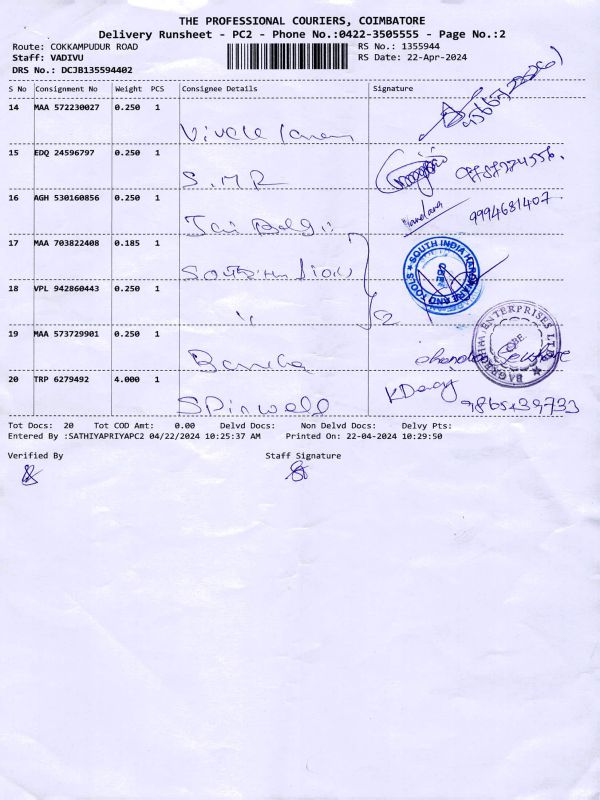 THE PROFESSIONAL COURIERS, COIMBATORE
Delivery Runsheet - PC2 - Phone No.:0422-3505555 - Page No.:2
Route: COKKAMPUDUR ROAD RS No.: 1355944
Staff: VADIVU RS Date: 22-Apr-2024
DRS No.: DCJB135594402
S No Consignment No Weight PCS Consignee Details Signature
14 MAA 572230027 0.250 1
15 EDQ 24596797 0.250 1
S.M.R
16 AGH 530160856 0.250 1
9994631407
17 MAA 703822408 0.185 1
SOUTH INDIA HARDWARE AND TOOLS
18 VPL 942860443 0.250 1
2
19 MAA 573729901 0.250 1
ENTERPRISES
20 TRP 6279492 4.000 1
Spinwell
Tot Docs: 20 Tot COD Amt: 0.00 Delvd Docs: Non Delvd Docs: Delvy Pts:
Entered By :SATHIYAPRIYAPC2 04/22/2024 10:25:37 AM Printed On: 22-04-2024 10:29:50
Verified By Staff Signature